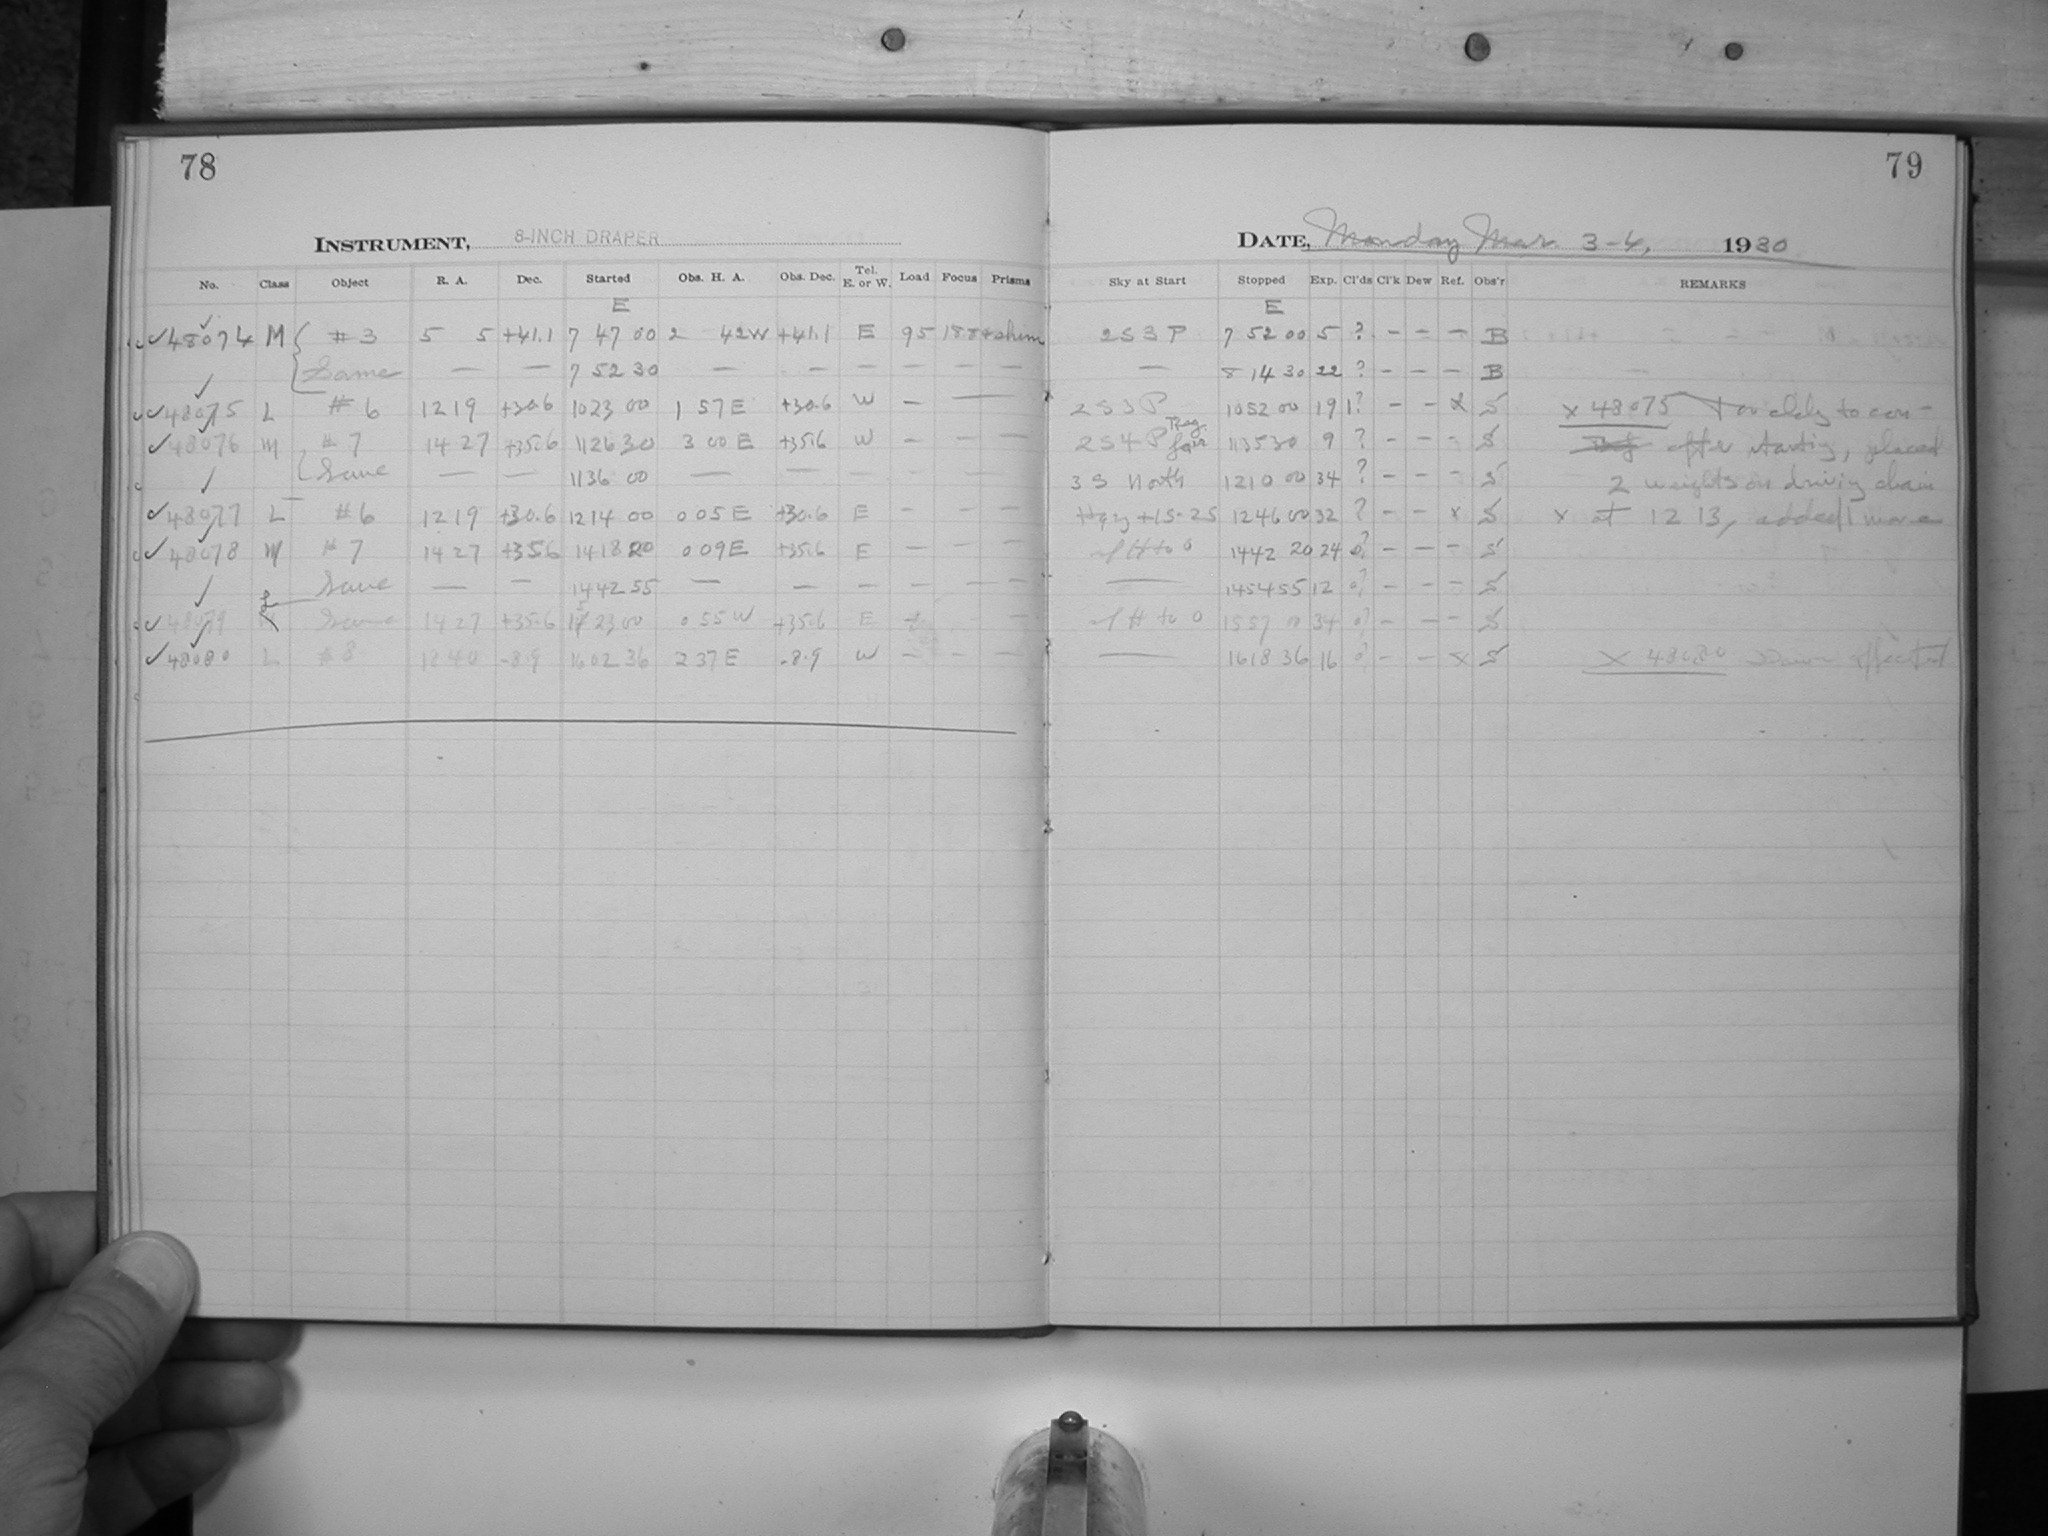 78
INSTRUMENT, 8-INCH DRAPER
No. Class Object R. A. Dec. Started Obs. H. A. Obs. Dec. Tel. E. or W. Load Focus Prisms
E
48074 M # 3 5 5 +41.1 7 47 00 2 42W +41.1 E 95 188
Same — — 7 52 30 — — — — — —
48075 L # 6 12 19 +30.6 10 23 00 1 57 E +30.6 W — — —
48076 M # 7 14 27 +35.6 11 26 30 3 00 E +35.6 W — — —
Same — — 11 36 00 — — — — — —
48077 L # 6 12 19 +30.6 12 14 00 0 05 E +30.6 E — — —
48078 M # 7 14 27 +35.6 14 18 20 0 09 E +35.6 E — — —
Same — — 14 42 55 — — — — — —
48079 L Same 14 27 +35.6 15 23 00 0 55 W +35.6 E — —
48080 L # 8 18 40 -8.9 16 02 36 2 37 E -8.9 W — — —
79
DATE, Monday Mar. 3-4, 1930
Sky at Start Stopped Exp. Cl'ds Cl'k Dew Ref. Obs'r REMARKS
E
2 S 3 P 7 52 00 5 ? — — — B
— 8 14 30 22 ? — — — B
2 S 3 P 10 52 00 19 1? — — x S x 48075 cldy to con-
2 S 4 P fair 11 35 30 9 ? — — - S after starting, placed
3 S North 12 10 00 34 ? — — - S 2 weights on driving chain
Hazy +15-25 12 46 00 32 ? — — x S x at 12 13, added 1 more
of H to 0 14 42 20 24 0? — — — S
— 14 54 55 12 0? — — — S
of H to 0 15 57 00 34 0? — — — S
— 16 18 36 16 0? — — x S x 48080 Dawn affected